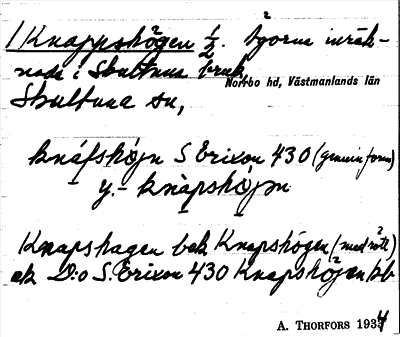 1 Knappshögen ½. Ägorna inräk-
nade i Skultuna bruk,
Norrbo hd, Västmanlands län
Skultuna sn,
knáfshǿjn S Erixon 430 (genuin form)
y.- knàpshǿjən
Knapshagen bek Knapshögen (med rätt)
ek D:o S. Erixon 430 Knapshöjen kb
A. THORFORS 1934